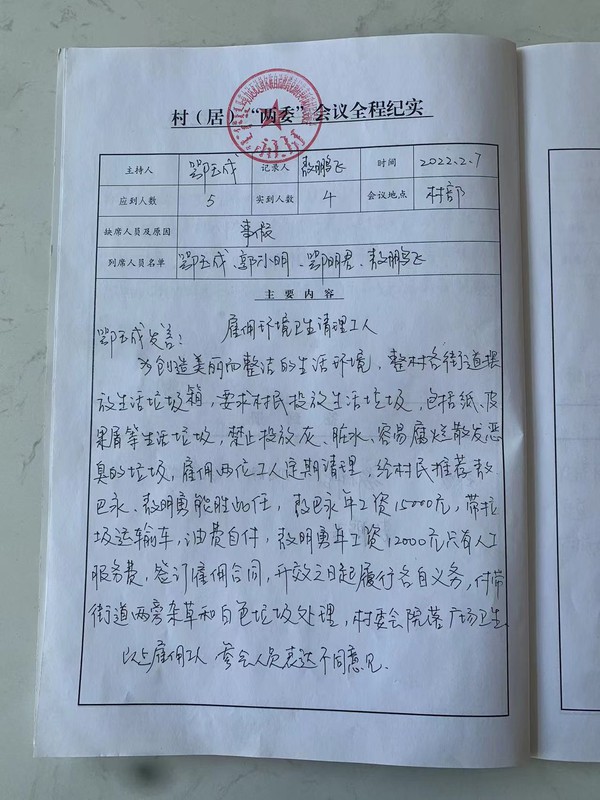 村（居）“两委”会议全程纪实
主持人 鄂玉成 记录人 敖鹏飞 时间 2022.2.7
应到人数 5 实到人数 4 会议地点 村部
缺席人员及原因 事假
到席人员名单 鄂玉成、郭小明、鄂明君、敖鹏飞
主要内容
鄂玉成发言： 雇佣环境卫生清理工人
为创造美丽而整洁的生活环境，整村各街道摆
放生活垃圾箱，要求村民投放生活垃圾，包括纸、皮
果屑等生活垃圾，禁止投放灰、脏水、容易腐烂散发恶
臭的垃圾，雇佣两位工人定期清理，经村民推荐敖
巴永、敖明勇能胜任，敖巴永年工资15000元，带垃
圾运输车，油费自付，敖明勇年工资12000元只有人工
服务费，签订雇佣合同，开效之日起履行各自义务，付带
街道两旁杂草和白色垃圾处理，村委会院落广场卫生
以上雇佣工人 参会人员表达不同意见.